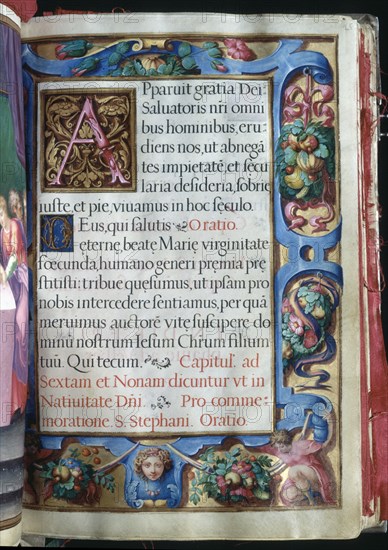 Apparuit gratia Dei
Saluatoris nr̃i omni
bus hominibus, eru
diens nos, ut abnegã
tes impietatẽ, et secu
laria desideria, sobrie,
iuste, et pie, viuamus in hoc sęculo.
Deus, qui salutis Oratio.
ęternę, beatę Marię virginitate
fœcunda, humano generi pręmia prę
stitisti: tribue quęsumus, ut ipsam pro
nobis intercedere sentiamus, per quã
meruimus auctorẽ vitę suscipere do
minũ nostrum Iesum Chrũm filium
tuũ. Qui tecum. Capitul. ad
Sextam et Nonam dicuntur vt in
Natiuitate Dñi. Pro comme
moratione. S. Stephani. Oratio.